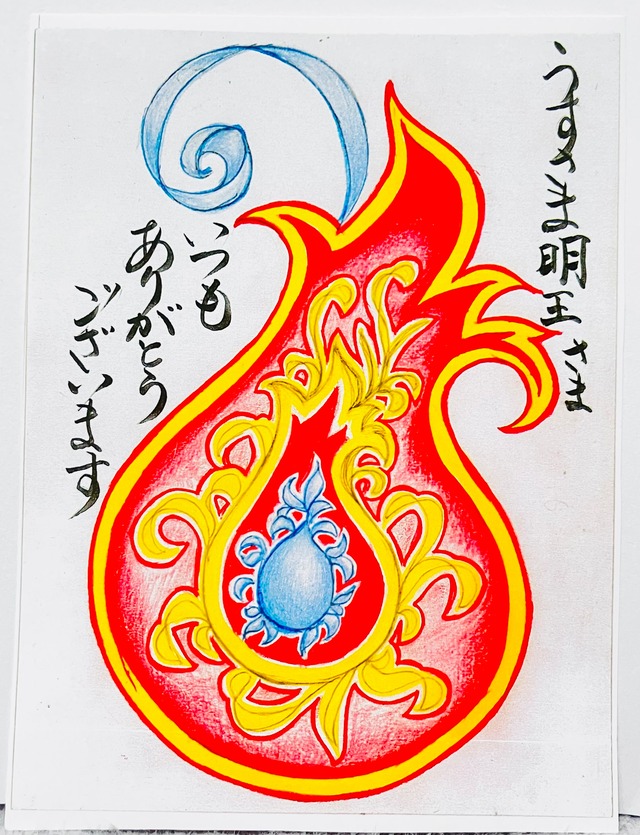 うすさま明王さま
いつも
ありがとう
ございます